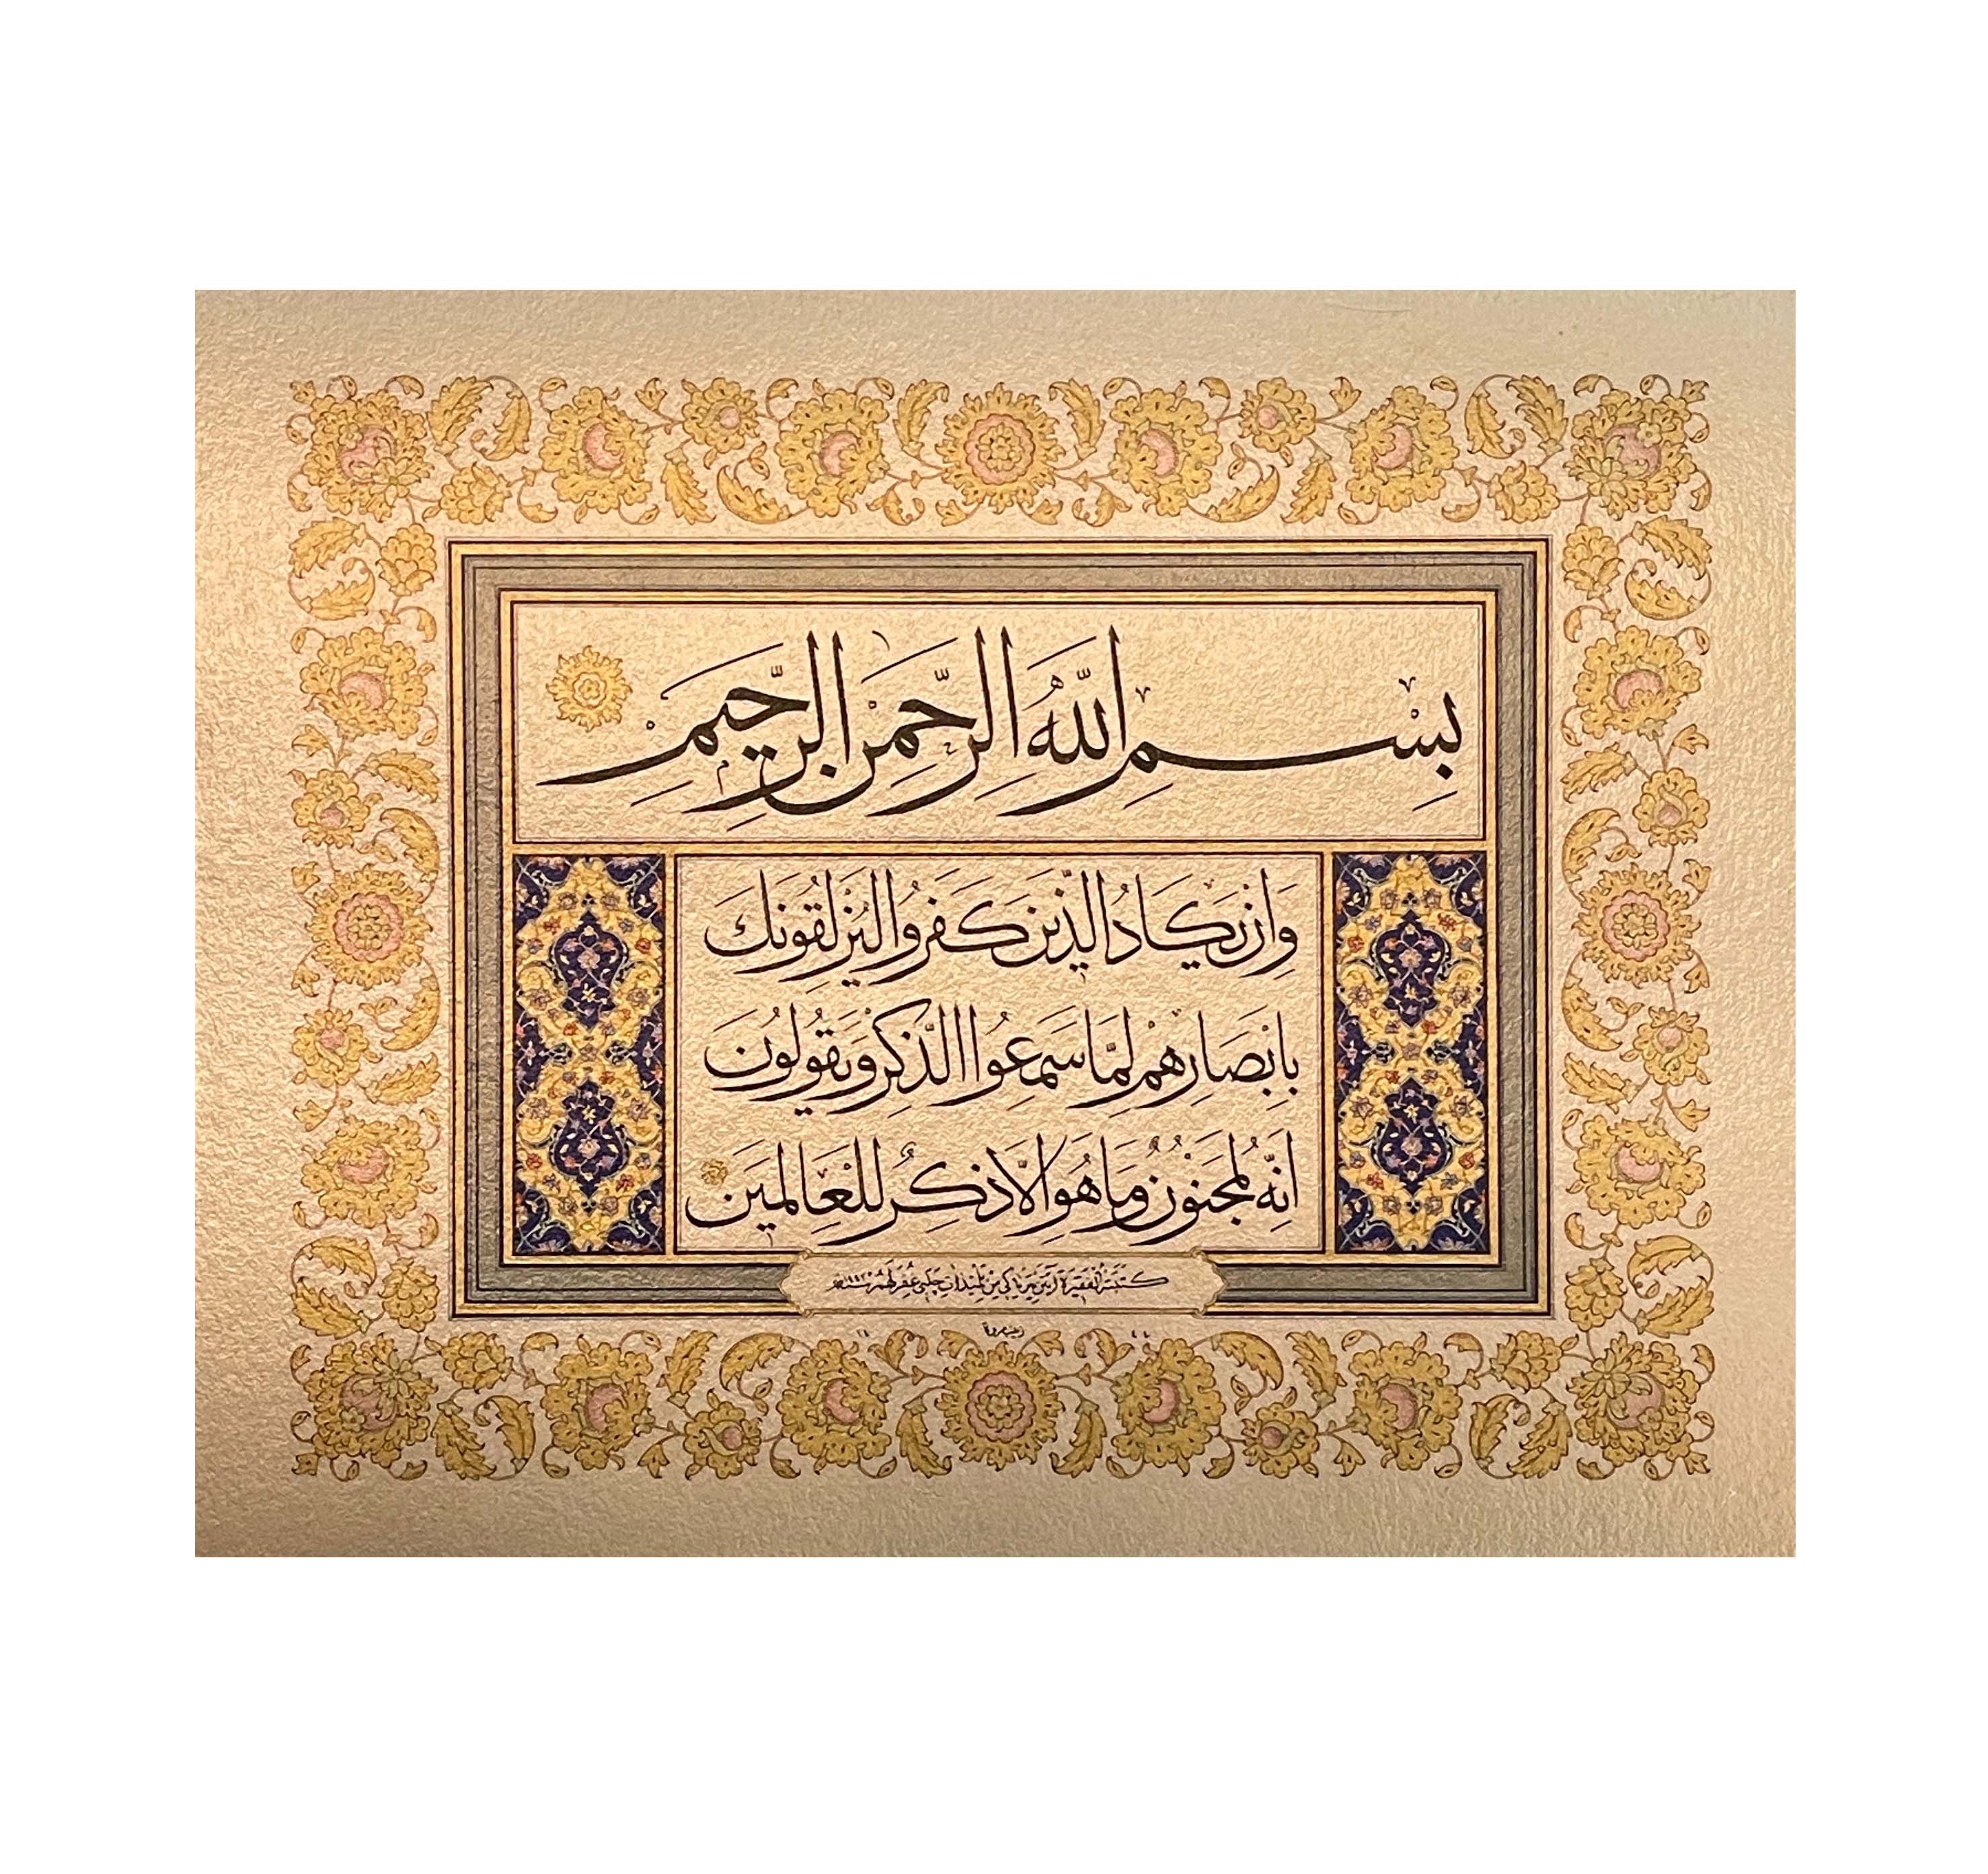 بِسْمِ اللّٰهِ الرَّحْمٰنِ الرَّحِيمِ
وَاِنْ يَكَادُ الَّذِينَ كَفَرُوا لَيُزْلِقُونَكَ
بِاَبْصَارِهِمْ لَمَّا سَمِعُوا الذِّكْرَ وَيَقُولُونَ
اِنَّهُ لَمَجْنُونٌ وَمَا هُوَ اِلَّا ذِكْرٌ لِلْعَالَمِينَ
كتبته الفقيرة من تلميذات چلبي غفر لهم